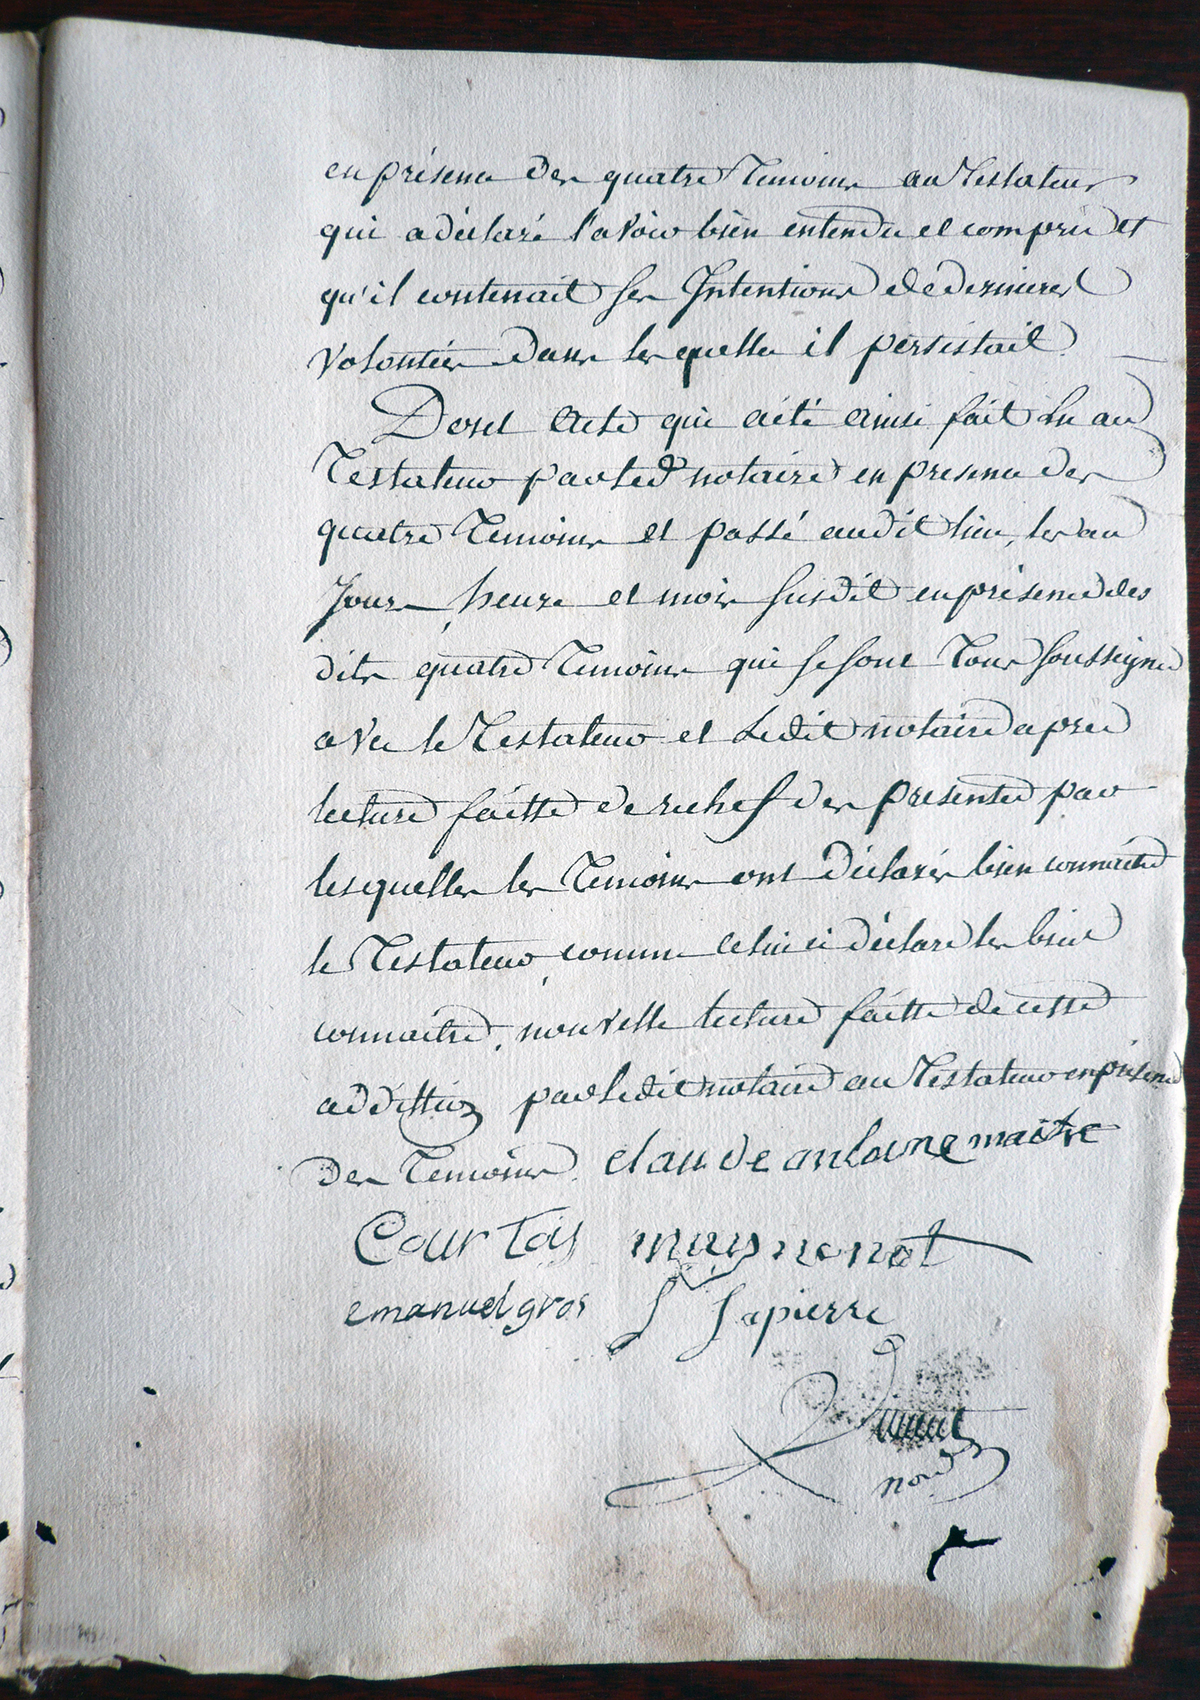 en présence des quatre Temoins au Testateur
qui a déclaré l'avoir bien entendu et compris et
qu'il contenait ses Intentions et dernieres
volontées dans les quelles il persistait.
Donct acte qui a été ainsi fait Lu au
Testateur par led notaire en presence des
quatre Temoins et passé audit lieu, les an
Jour, heure et mois susdit en présence des
dits quatre Temoins qui se sont Tous soussigné
avec le Testateur et Ledit notaire après
lecture faitte de rechef des presentes par
lesquelles les Temoins ont déclarés bien connaitre
le Testateur, comme celui ci déclare les bien
connaitre, nouvelle lecture faitte de cette
addittion par Ledit notaire au Testateur en présence
des Temoins. claude antoine maitre
Courtois mugnenot
emanuel gros Lapierre
nore